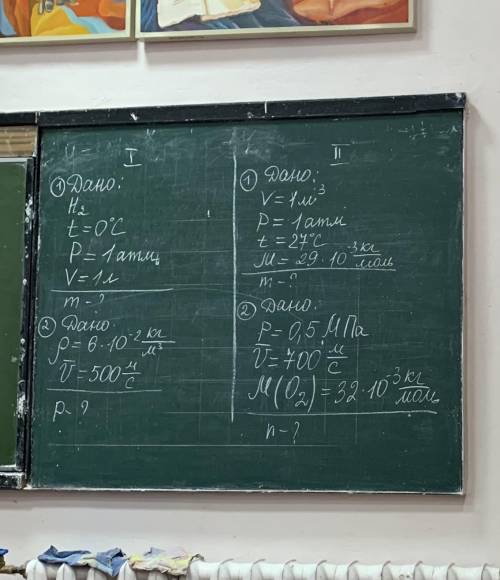 I
① Дано:
H₂
t = 0°C
P = 1 атм.
V = 1 л
m - ?
② Дано:
ρ = 6 · 10⁻² кг/м³
v̅ = 500 м/с
p - ?
II
① Дано:
V = 1 м³
P = 1 атм
t = 27°C
M = 29 · 10⁻³ кг/моль
m - ?
② Дано:
P = 0,5 МПа
v̅ = 700 м/с
M(O₂) = 32 · 10⁻³ кг/моль
n - ?